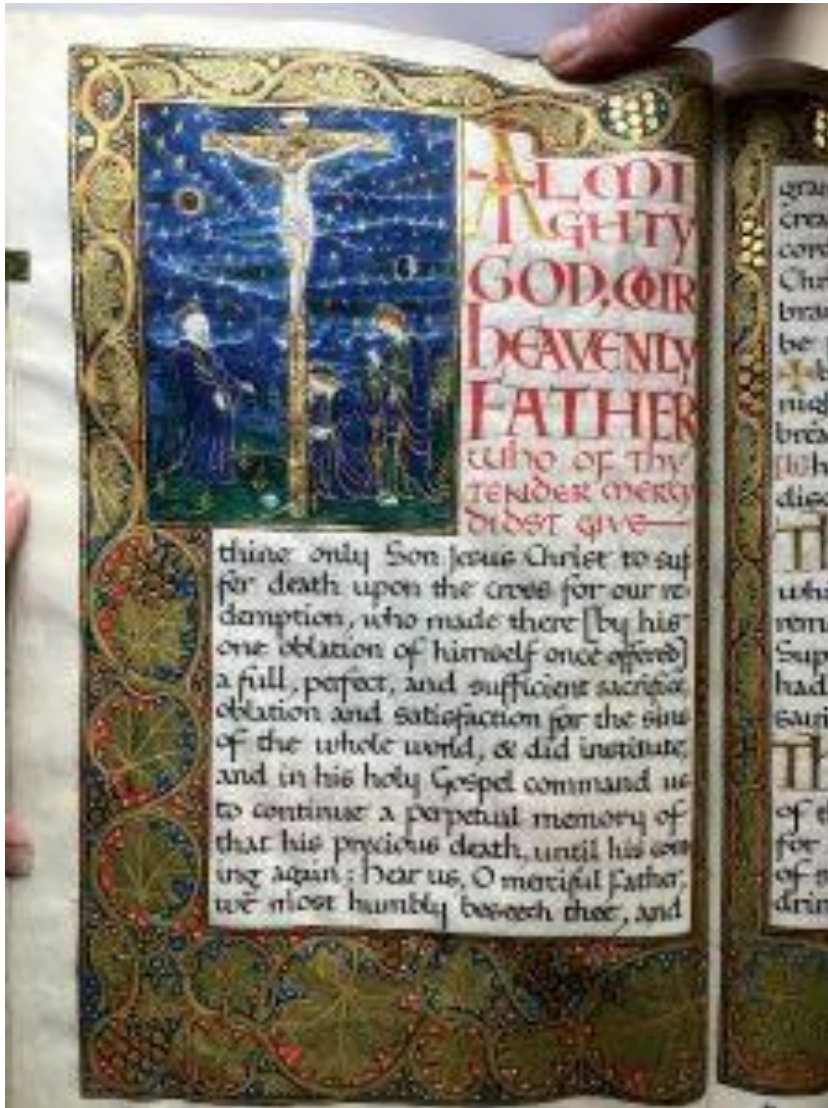 ALMI
GHTY
GOD, OUR
HEAVENLY
FATHER
who of thy
TENDER MERCY
DIDST GIVE—
thine only Son Jesus Christ to suf
fer death upon the cross for our re
demption, who made there [by his
one oblation of himself once offered]
a full, perfect, and sufficient sacrifice,
oblation and satisfaction for the sins
of the whole world, & did institute,
and in his holy Gospel command us
to continue a perpetual memory of
that his precious death, until his com
ing again: Hear us, O merciful Father,
we most humbly beseech thee, and
Chri
be
disc
Th
who
rem
Sup
had
Th
of t
for
of
drin